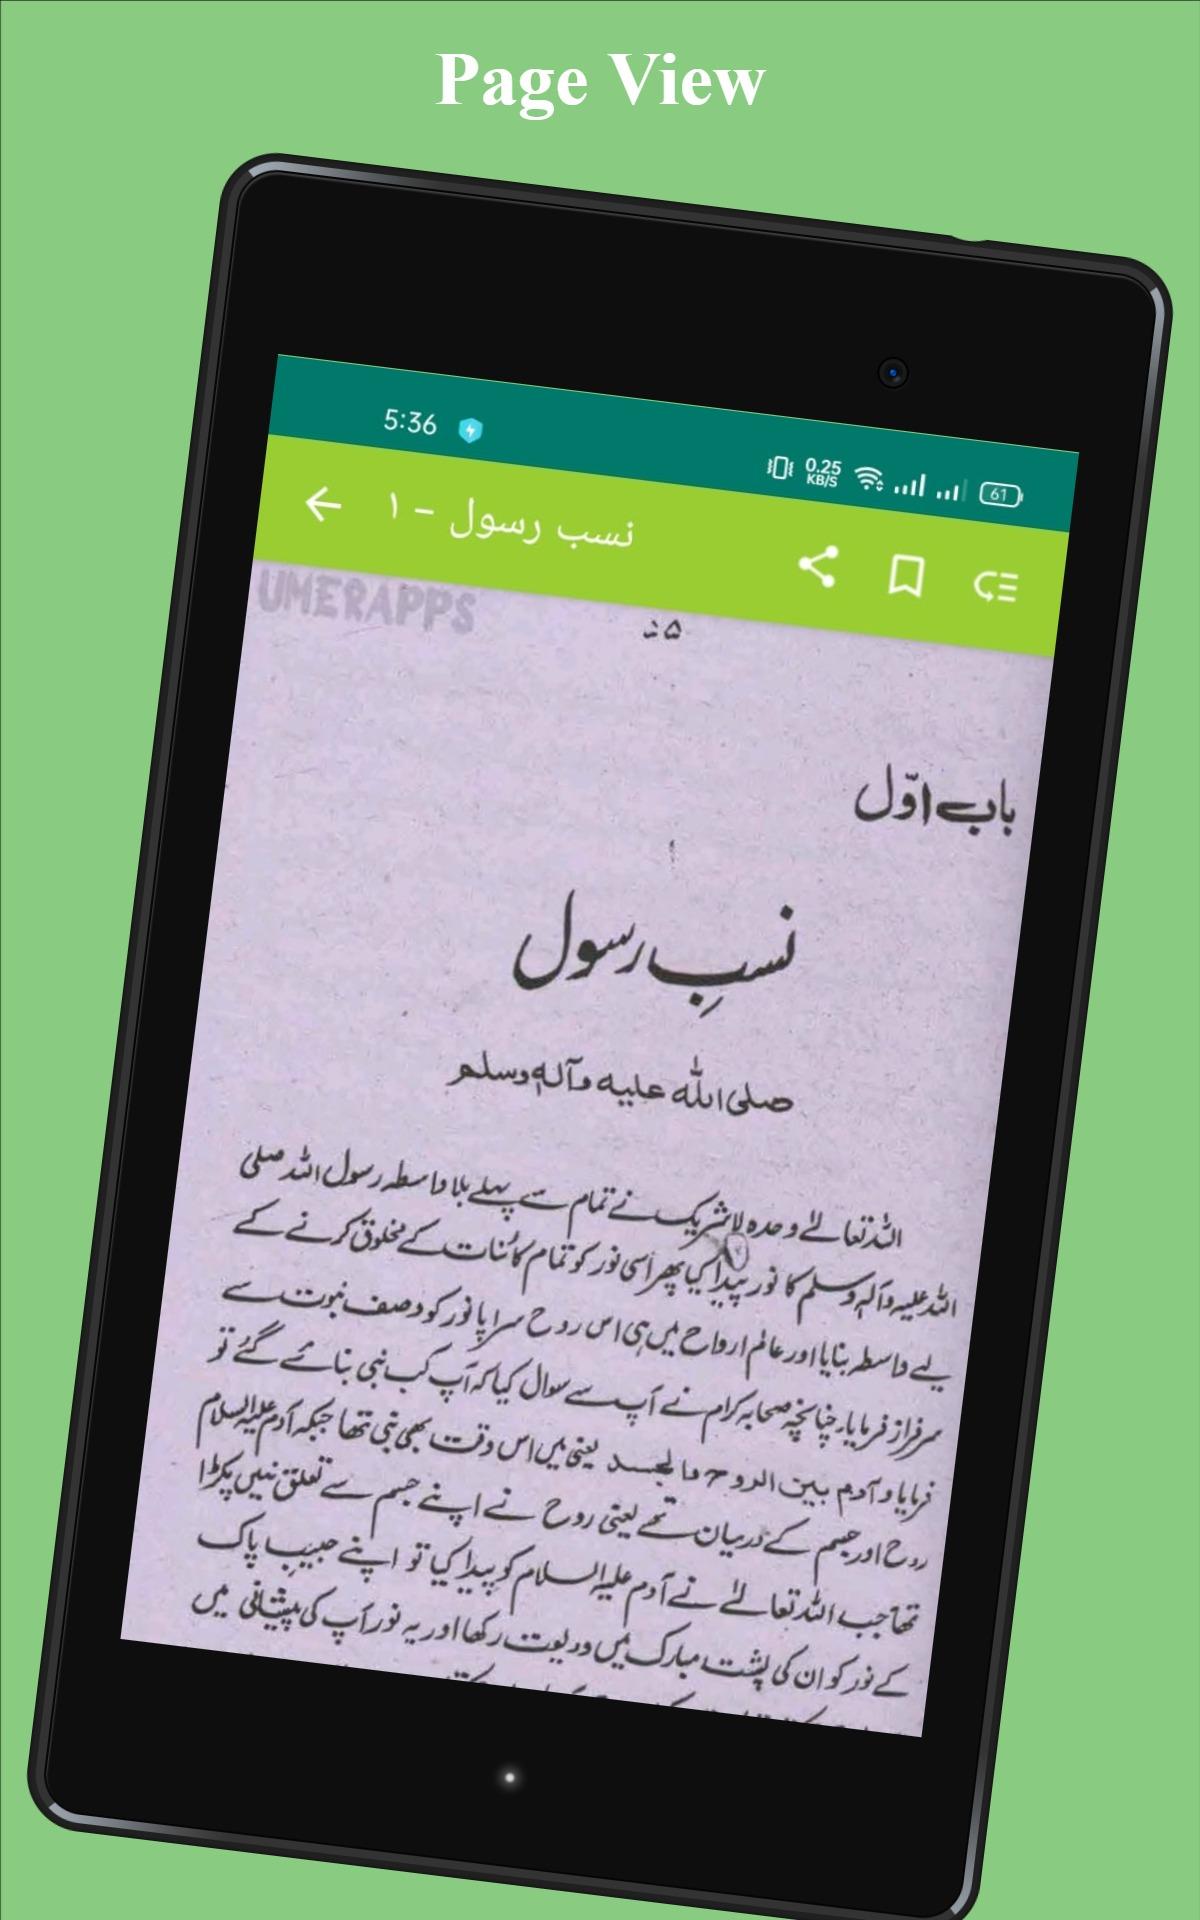 Page View
5:36
0.25
KB/S
61
نسب رسول - ۱
UMERAPPS
باب اوّل
نسبِ رسول
صلی اللہ علیہ وآلہٖ وسلم
اللہ تعالےٰ وحدہ لاشریک نے تمام سے پہلے بلا واسطہ رسول اللہ صلی
اللہ علیہ وآلہٖ وسلم کا نور پیدا کیا پھر اسی نور کو تمام کائنات کے مخلوق کرنے کے
لیے واسطہ بنایا اور عالم ارواح میں ہی اس روح سراپا نور کو وصف نبوت سے
سرفراز فرمایا۔ چنانچہ صحابہ کرام نے آپ سے سوال کیا کہ آپ کب نبی بنائے گئے تو
فرمایا و آدم بین الروح والجسد یعنی میں اس وقت بھی نبی تھا جبکہ آدم علیہ السلام
روح اور جسم کے درمیان تھے یعنی روح نے اپنے جسم سے تعلق نہیں پکڑا
تھا جب اللہ تعالےٰ نے آدم علیہ السلام کو پیدا کیا تو اپنے حبیبِ پاک
کے نور کو ان کی پشت مبارک میں ودیعت رکھا اور یہ نور آپ کی پیشانی میں